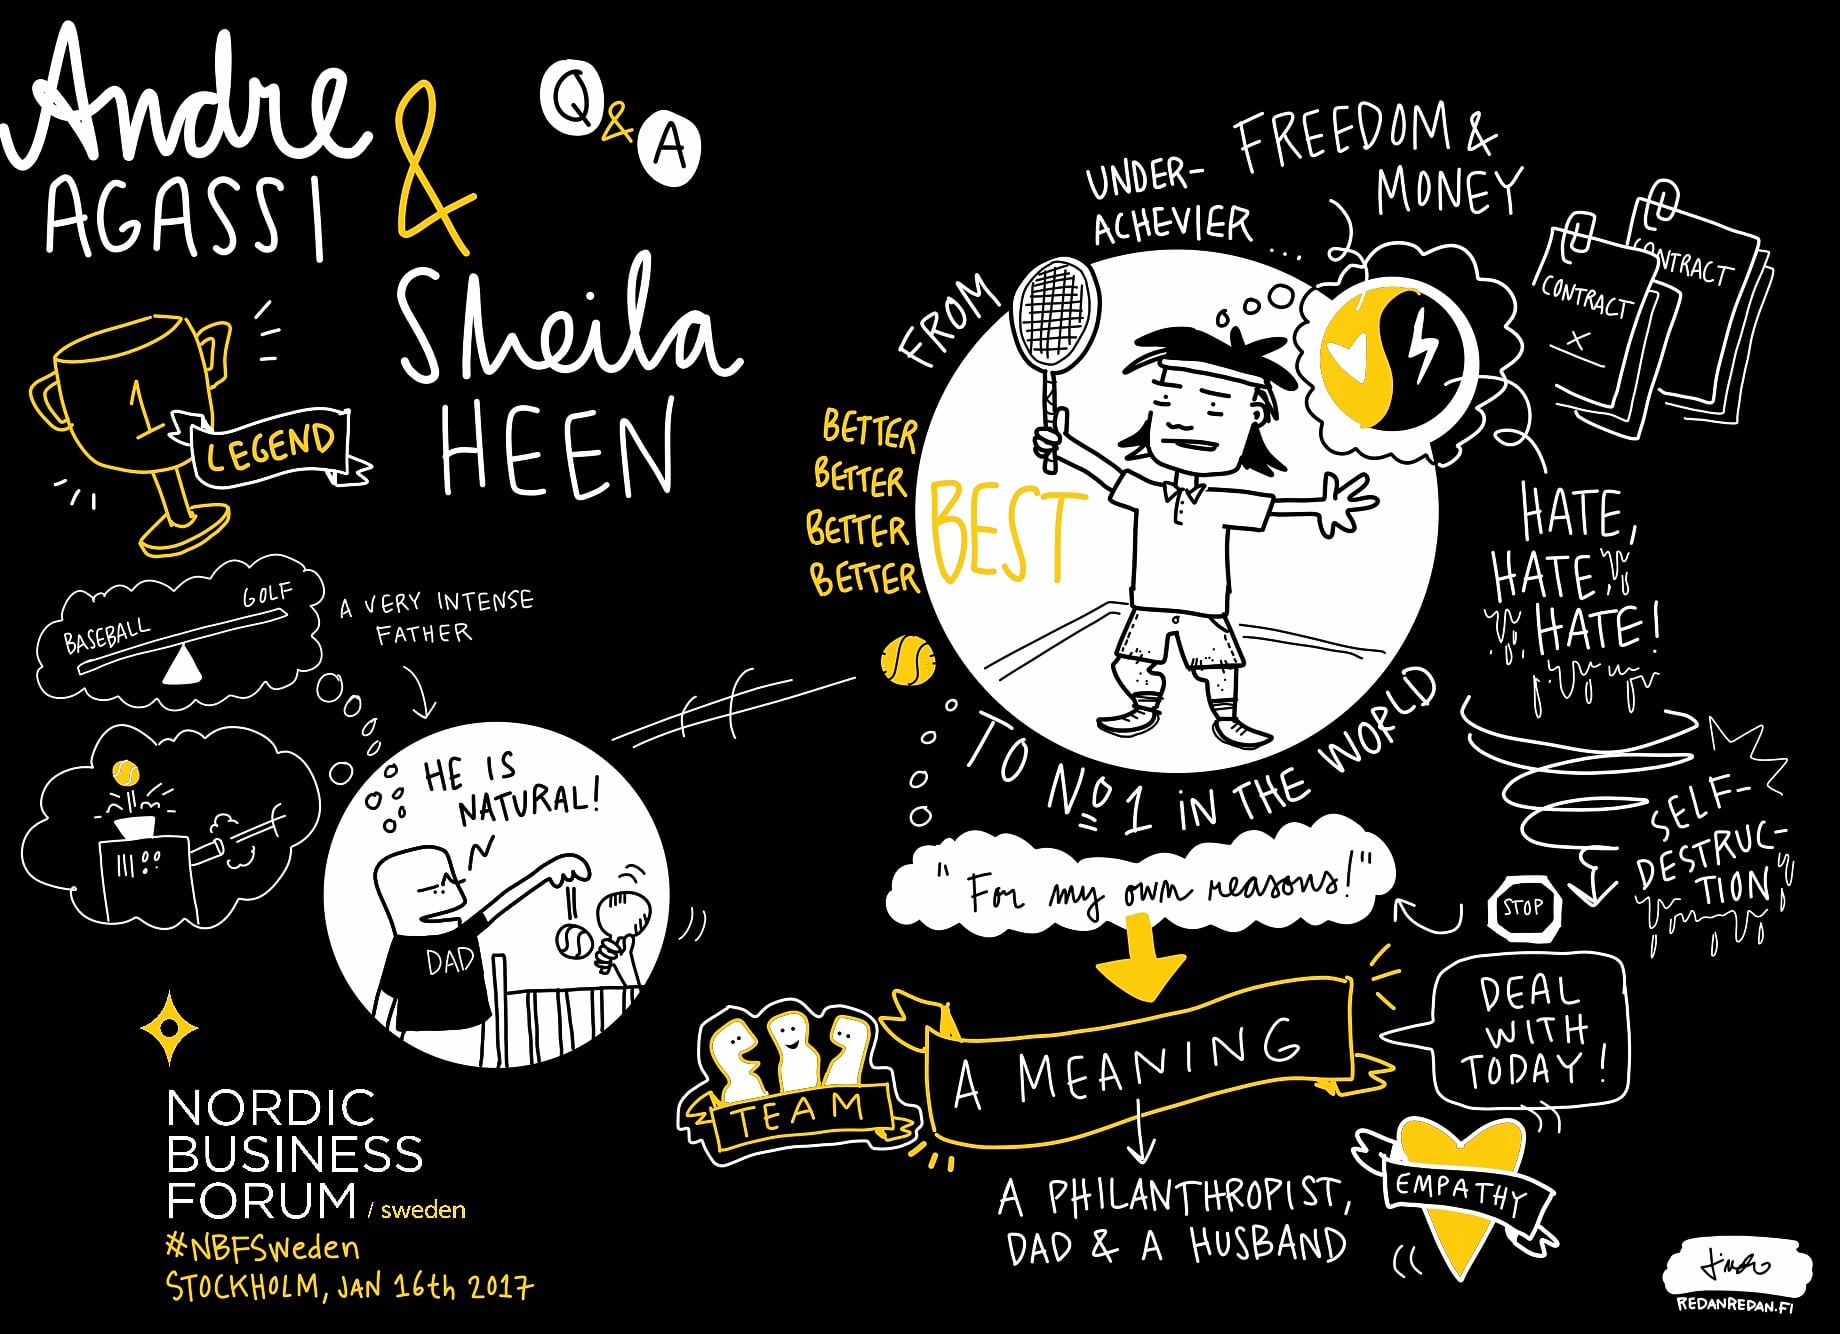 Andre
AGASSI
&
Sheila
HEEN
Q & A
1
LEGEND
BASEBALL
GOLF
A VERY INTENSE
FATHER
HE IS
NATURAL!
DAD
NORDIC
BUSINESS
FORUM / sweden
#NBFSweden
STOCKHOLM, JAN 16th 2017
FROM
UNDER-
ACHEVIER ...
FREEDOM &
MONEY
CONTRACT
X
CONTRACT
BETTER
BETTER
BETTER
BETTER
BEST
TO No 1 IN THE WORLD
HATE,
HATE,
HATE!
SELF-
DESTRUC-
TION
STOP
"For my own reasons!"
DEAL
WITH
TODAY!
TEAM
A MEANING
A PHILANTHROPIST,
DAD & A HUSBAND
EMPATHY
REDANREDAN.FI